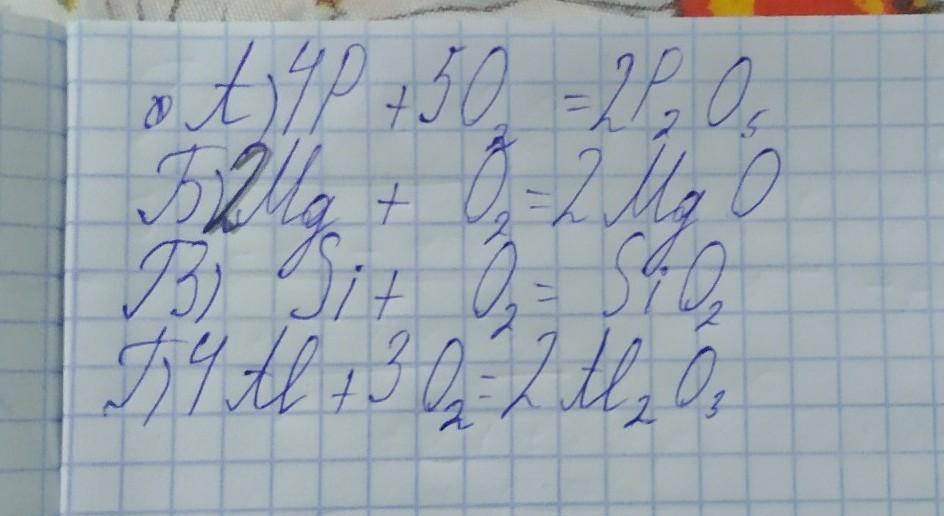 А) 4P + 5O₂ = 2P₂O₅
Б) 2Mg + O₂ = 2MgO
В) Si + O₂ = SiO₂
Г) 4Al + 3O₂ = 2Al₂O₃